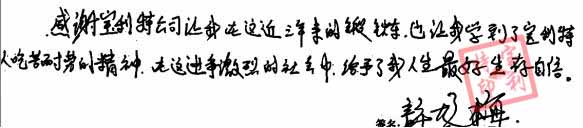 感谢宝利特公司让我在这近三年来的锻炼，也让我学到了宝利特
人吃苦耐劳的精神，在这进争激烈的社会中，给予了我人生最好生存自信。
签名：
宝利特印